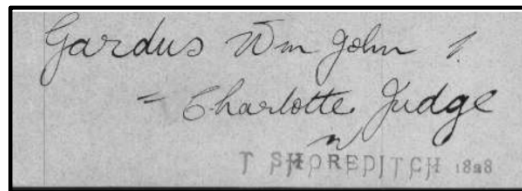 Gardus Wm John
= Charlotte Judge
SHOREDITCH